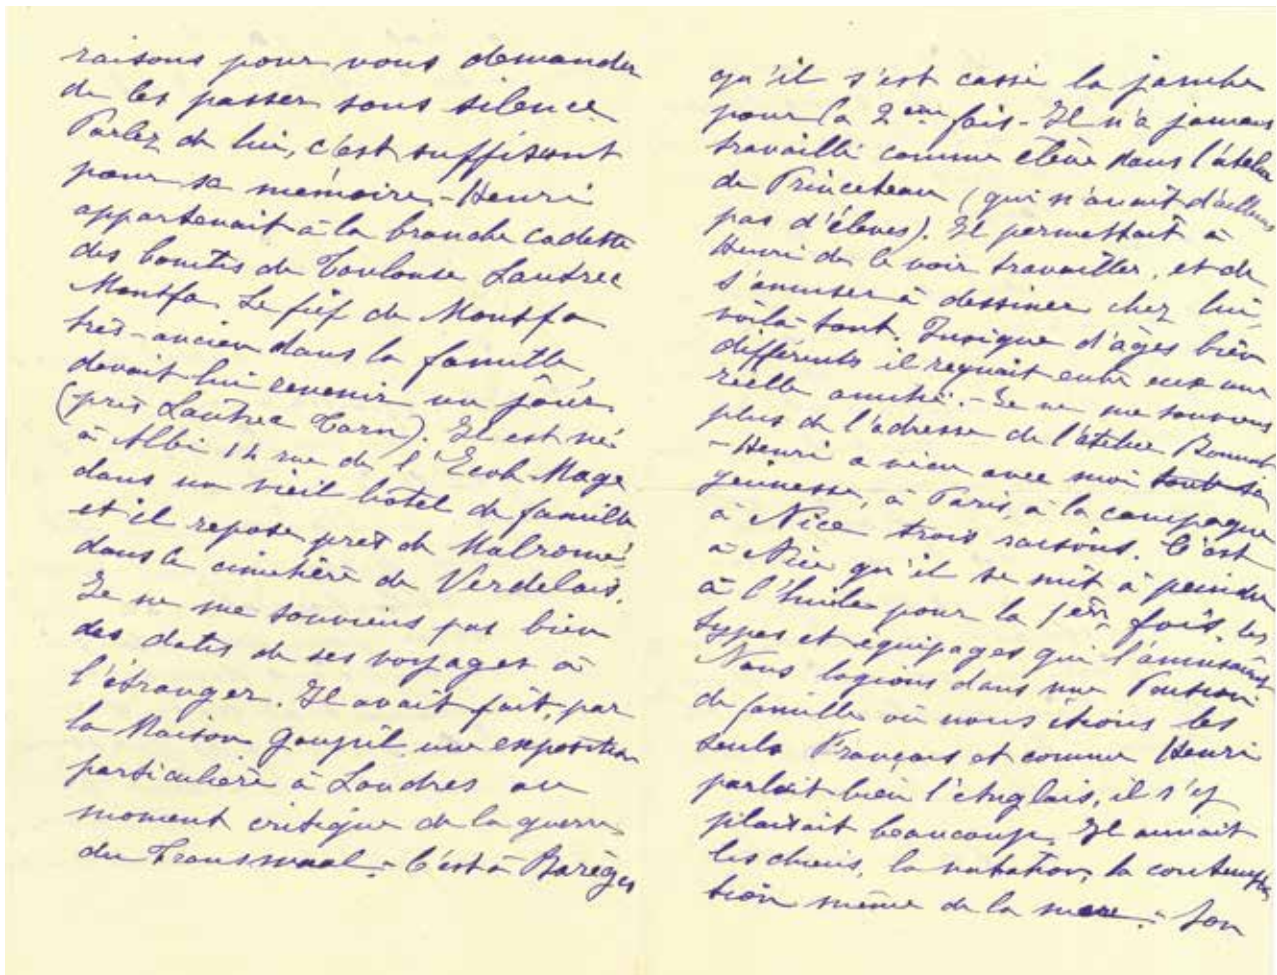 raisons pour vous demander
de les passer sous silence
Parlez de lui, c'est suffisant
pour sa mémoire. - Henri
appartenait à la branche cadette
des Comtes de Toulouse Lautrec
Monfa. Le fief de Montfa
très-ancien dans la famille,
devait lui revenir un jour.
(près Lautrec Tarn). Il est né
à Albi 14 rue de l'Ecole Mage
dans un vieil hôtel de famille
et il repose près de Malromé
dans le cimetière de Verdelais.
Je ne me souviens pas bien
des dates de ses voyages à
l'étranger. Il avait fait, par
la Maison Goupil une exposition
particulière à Londres au
moment critique de la guerre
du Transwaal. - C'est à Barèges
qu'il s'est cassé la jambe
pour la 2ème fois - Il n'a jamais
travaillé comme élève dans l'atelier
de Princeteau (qui n'avait d'ailleurs
pas d'élèves). Il permettait à
Henri de le voir travailler, et de
s'amuser à dessiner chez lui,
voilà tout. Quoique d'âges bien
différents il régnait entre eux une
réelle amitié. - Je ne me souviens
plus de l'adresse de l'atelier Bonnat
- Henri a vécu avec moi toute sa
jeunesse, à Paris, à la campagne
à Nice trois saisons. C'est
à Nice qu'il se mit à peindre
à l'huile pour la 1ère fois, les
types et équipages qui l'amusaient.
Nous logions dans une Pension
de famille où nous étions les
seuls Français et comme Henri
parlait bien l'Anglais, il s'y
plaisait beaucoup. Il aimait
les chiens, la natation, la contempla
tion même de la mer. - Son